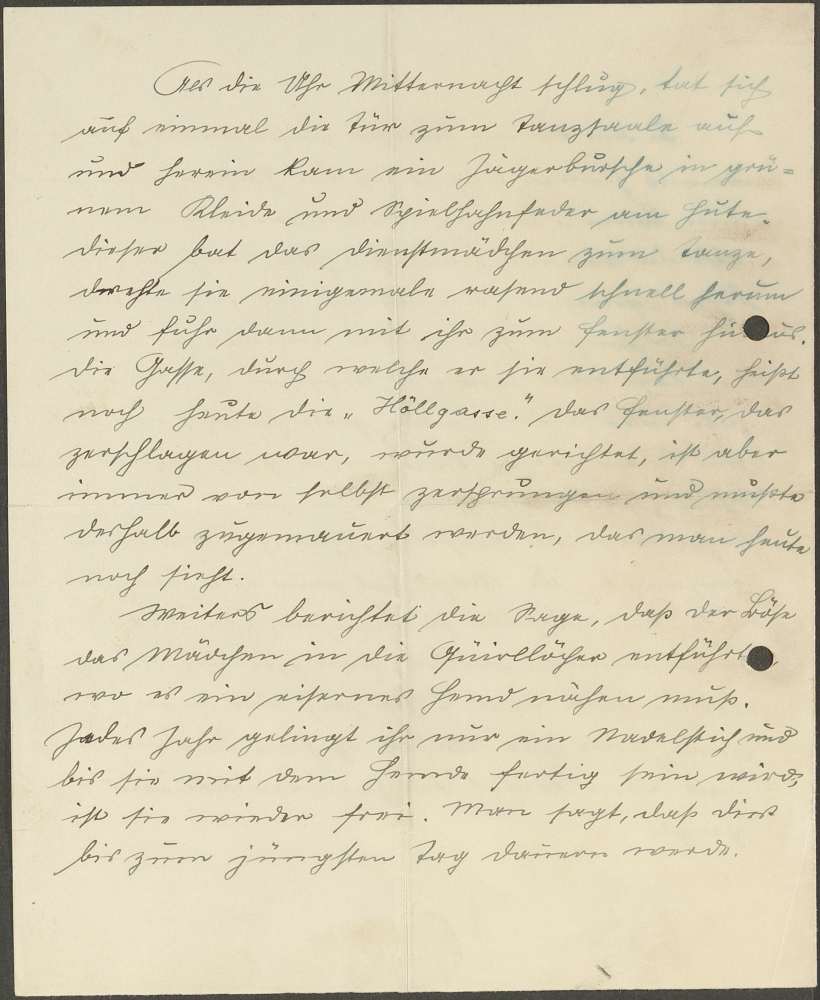 Als die Uhr Mitternacht schlug, tat sich
auf einmal die Tür zum Tanzsaale auf
und herein kam ein Jägerbursche in grü=
nem Kleide und Spielhahnfeder am Hute.
Dieser bat das Dienstmädchen zum Tanze,
drehte sie einigemale rasend schnell herum
und fuhr dann mit ihr zum Fenster hinaus.
Die Gasse, durch welche er sie entführte, heißt
noch heute die „Höllgasse." Das Fenster, das
zerschlagen war, wurde gerichtet, ist aber
immer von selbst zersprungen und mußte
deshalb zugemauert werden, das man heute
noch sieht.
Weiters berichtet die Sage, daß der Böse
das Mädchen in die entführte,
wo es ein eisernes Hemd nähen muß.
Jedes Jahr gelingt ihr nur ein Nadelstich und
bis sie mit dem Hemde fertig sein wird,
ist sie wieder frei. Man sagt, daß dies
bis zum jüngsten Tag dauern werde.